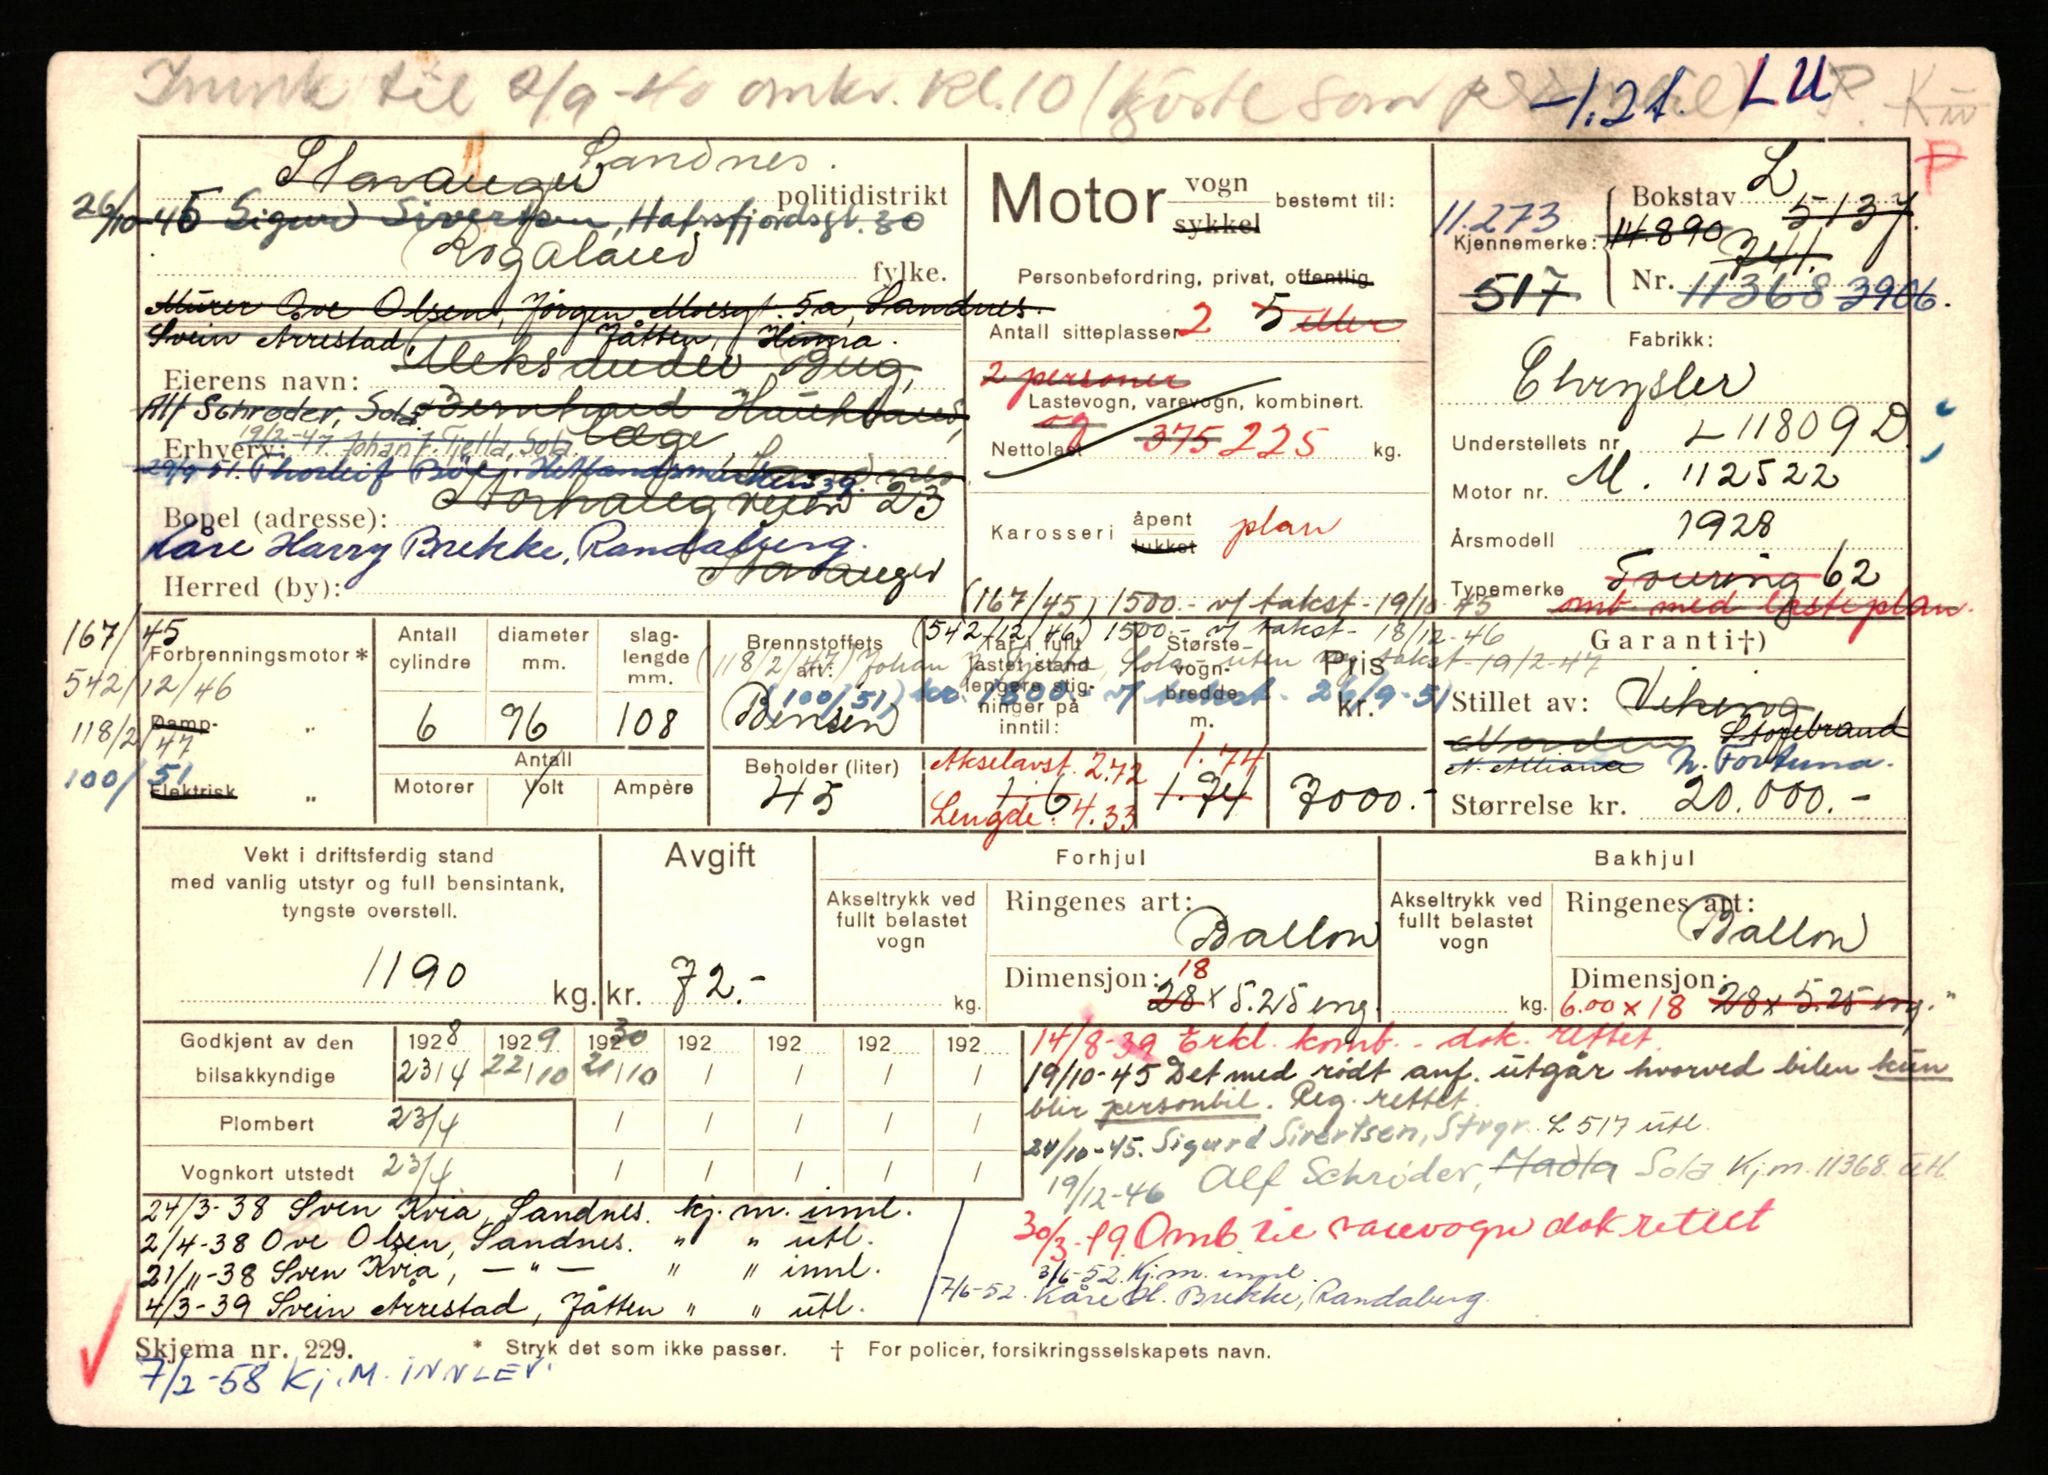 Innsk til 2/9-40 omkr. kl. 10 (Kjøste som
-1.2t. L U P. Kw
P
Stavanger Sandnes.
politidistrikt
26/10-45 Sigurd Sivertsen, Hafrsfjordsgt. 30
Rogaland
fylke.
Murer Ove Olsen, Jørgen Moesgt. 5a, Sandnes.
Svein Arrestad, Jåtten, Hinna.
Eierens navn: Aleksander Bug,
Alf Schrøder, Sola Bernhard Haukland,
Erhverv: læge
19/2-47 Johan F. Tjelta, Sola.
29/9 51. Thorleif Bøe, Hetlandsmarken 39. Sandnes
Bopel (adresse): Storhaugveien 23
Kåre Harry Brekke, Randaberg.
Herred (by): Stavanger
Motor vogn
sykkel
bestemt til:
Personbefordring, privat, offentlig
Antall sitteplasser 2 5 eller
2 personer
Lastevogn, varevogn, kombinert.
og
Nettolast 375 225 kg.
Karosseri åpent
lukket
plan
Bokstav L
11.273 14.890 5137
Kjennemerke:
517 Nr. 11368 3906.
Fabrikk:
Chrysler
Understellets nr L 11809 D
Motor nr. M. 112522
Årsmodell 1928
Typemerke Touring 62
omb. med lasteplan.
(167/45) 1500.- v/ takst - 19/10-45
(542/12/46) 1500.- v/ takst - 18/12-46
(118/2/47) Johan F. Tjelta, Sola - uten ny takst - 19/2-47
(100/51) kr. 1800.- v/ takst - 26/9-51
167/45
Forbrenningsmotor *
542/12/46
Damp- „
118/2/47
100/51
Elektrisk „
Antall cylindre
6
diameter mm.
96
slag-
lengde
mm.
108
Antall
Motorer Volt Ampère
Brennstoffets
art:
Bensin
Beholder (liter)
45
Tar i fullt
lastet stand
lengere stig-
ninger på
inntil:
Akselavst. 2.72
1:6
Lengde: 4.33
Største
vogn-
bredde
m.
1.74
1.74
Pris
kr.
7000.-
Garanti†)
Stillet av: Viking
Norden Storebrand
N. Alliance N. Fortuna.
Størrelse kr. 20.000.-
Vekt i driftsferdig stand
med vanlig utstyr og full bensintank,
tyngste overstell.
1190 kg.
Avgift
kr. 72.-
Forhjul
Akseltrykk ved
fullt belastet
vogn
kg.
Ringenes art:
Ballon
Dimensjon: 18
28 x 5.25 eng.
Bakhjul
Akseltrykk ved
fullt belastet
vogn
kg.
Ringenes art:
Ballon
Dimensjon:
6.00 x 18 28 x 5.25 eng. "
Godkjent av den
bilsakkyndige
1928 1929 1930 192 192 192 192
23/4 22/10 21/10 / / / /
Plombert 23/4 / / / / /
Vognkort utstedt 23/4 / / / / /
14/8-39 Erkl. komb. - dok. rettet.
19/10-45 Det med rødt anf. utgår hvorved bilen kun
blir personbil. Reg. rettet.
24/10-45. Sigurd Sivertsen, Strgr. L 517 utl.
19/12-46 Alf Schrøder, Madla Sola Kj.m. 11368. utl
30/3-49. Omb til varevogn dok rettet
3/6-52. Kj.m. innl
7/6-52. Kåre H. Brekke, Randaberg.
24/3-38 Sven Kvia, Sandnes. kj. m. innl.
2/4-38 Ove Olsen, Sandnes. " " utl.
21/11-38 Sven Kvia, — " — " " innl.
4/3-39 Svein Arrestad, Jåtten " " utl.
Skjema nr. 229. * Stryk det som ikke passer. † For policer, forsikringsselskapets navn.
7/2-58 Kj. M. INNLEV.